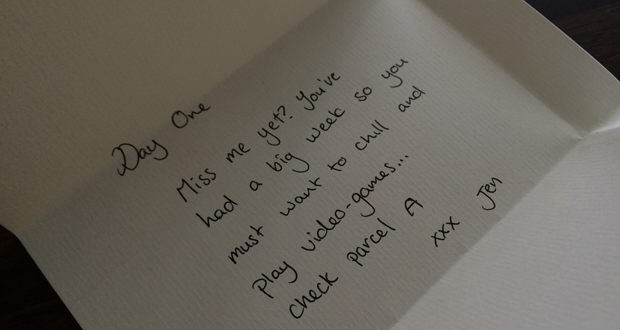 Day One
Miss me yet? You've
had a big week so you
must want to chill and
play video-games...
check parcel A
xxx Jen